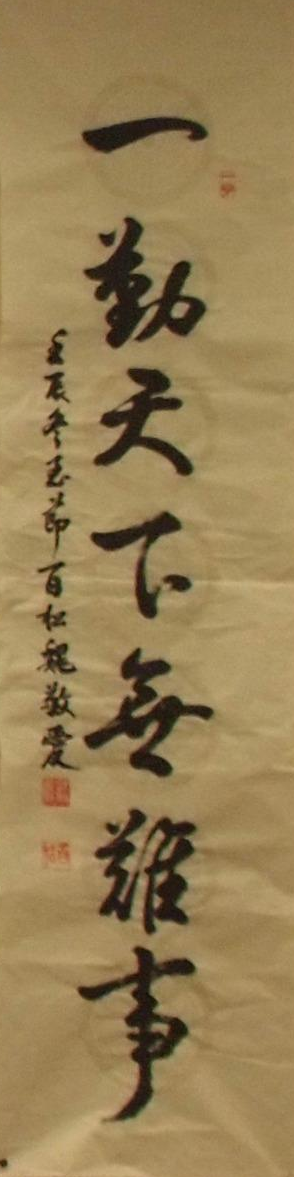 一勤天下無難事
壬辰冬至節百松魏敬愛